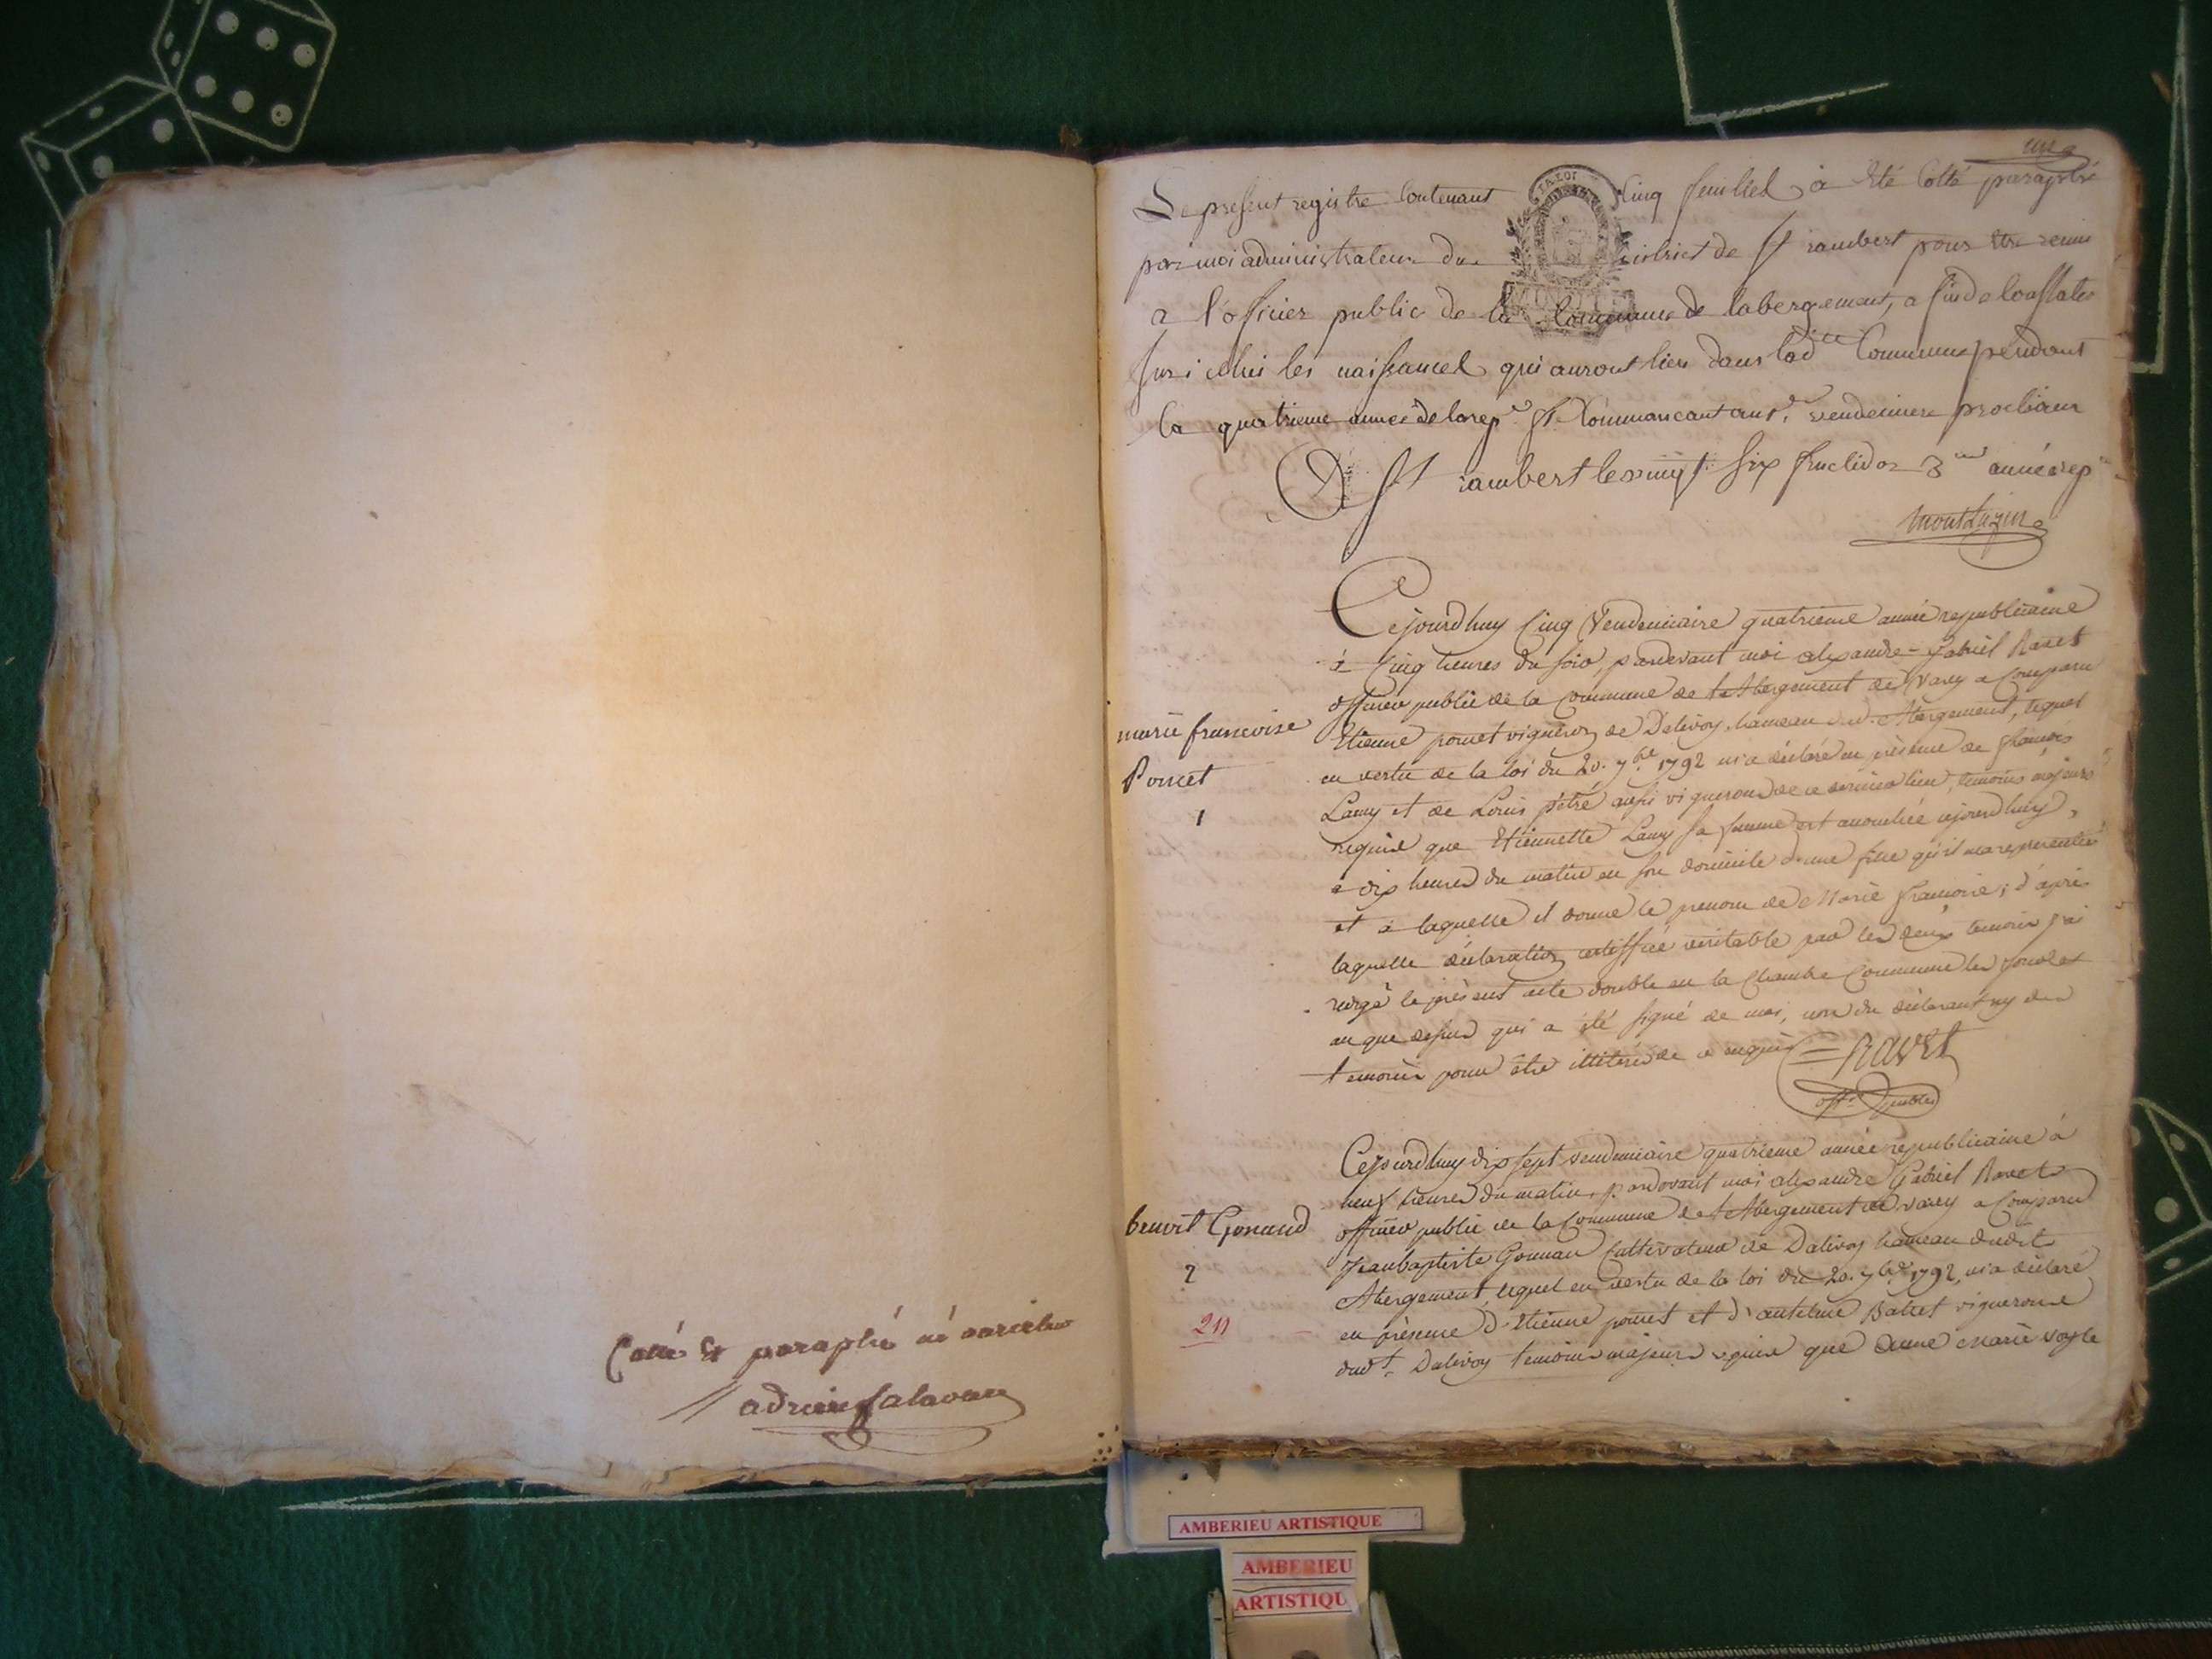 Cotté & paraphé né varietur
une
Le present registre Contenant Cinq feuillets a Eté Cotté paraphé
LA LOI
par moi administrateur du district de St rambert pour Etre remis
a l'officier public de la Commune de labergement, a fin de Constater
sur icelui les naissances qui auront lieu dans lad.te Commune pendant
la quatrieme année de la rep.e fse Commancant au 1.er vendemiere prochain
A St rambert le vingt six fructidor 3me année rep
montluzin
Cejourdhuy Cinq Vendemiaire quatrieme année republicaine
à Cinq heures du soir, pardevant moi alexandre-Gabriel Ravet
officier public de la Commune de l'Abergement de Varey a Comparu
Etienne poncet vigneron de Dalivoy hameau dud. Abergement, lequel
en vertu de la loi du 20. 7.bre 1792 m'a déclaré en présence de francois
Lamy et de Louis pitré aussi vignerons de ce dernier lieu, temoins majeurs
requis que Etiennette Lamy sa femme est accouchée cejourdhuy,
à dix heures du matin en son domicile d'une fille qu'il ma representée
et à laquelle il donne le prenom de Marie francoise; d'après
laquelle déclaration certiffiée veritable par les deux temoins j'ai
redigé le présent acte double en la Chambre Commune les jour et
an que dessus qui a été signé de moi, non du déclarant ny des
temoins pour être illitérés de ce enquis = RAVET
off.r public
marie francoise
Poncet
1
Cejourdhuy dix sept vendemiaire quatrieme année republicaine à
neuf heures du matin, pardevant moi alexandre Gabriel Ravet
officier public de la Commune de l'Abergement de varey a Comparu
Jean baptiste Gonnau Cultivateur de Dalivoy hameau dudit
Abergement, lequel en vertu de la loi du 20. 7.bre 1792, m'a déclaré
en présence d'Etienne poncet et d'antelme Batret vignerons
dud.t Dalivoy temoins majeurs requis que Anne Marie
benoit Gonaud
2
211
AMBERIEU ARTISTIQUE
AMBERIEU
ARTISTIQU